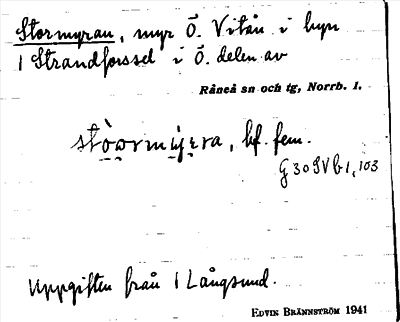 Stormyran, myr Ö. Vitån i byn
1 Strandforssel i Ö. delen av
Råneå sn och tg, Norrb. l.
stòormỳra, bf. fem.
G 30 SV b 1, 103
Uppgiften från 1 Långsund.
EDVIN BRÄNNSTRÖM 1941